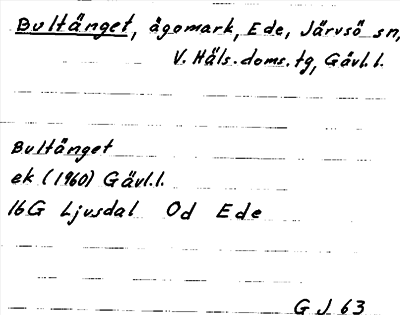 Bultänget, ägomark, Ede, Järvsö sn,
V. Häls. doms. tg, Gävl. l.
Bultänget
ek (1960) Gävl. l.
16G Ljusdal Od Ede
G J 63